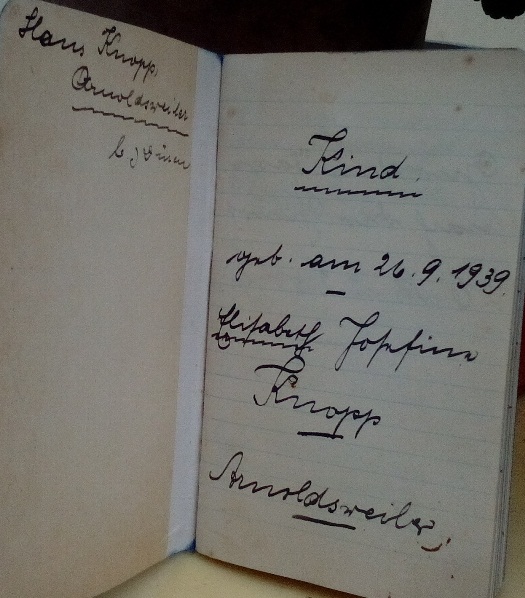 Hans Knopp
Arnoldsweiler
b/Düren
Kind.
geb. am 26.9.1939.
Elisabeth Josefine
Knopp
Arnoldsweiler,